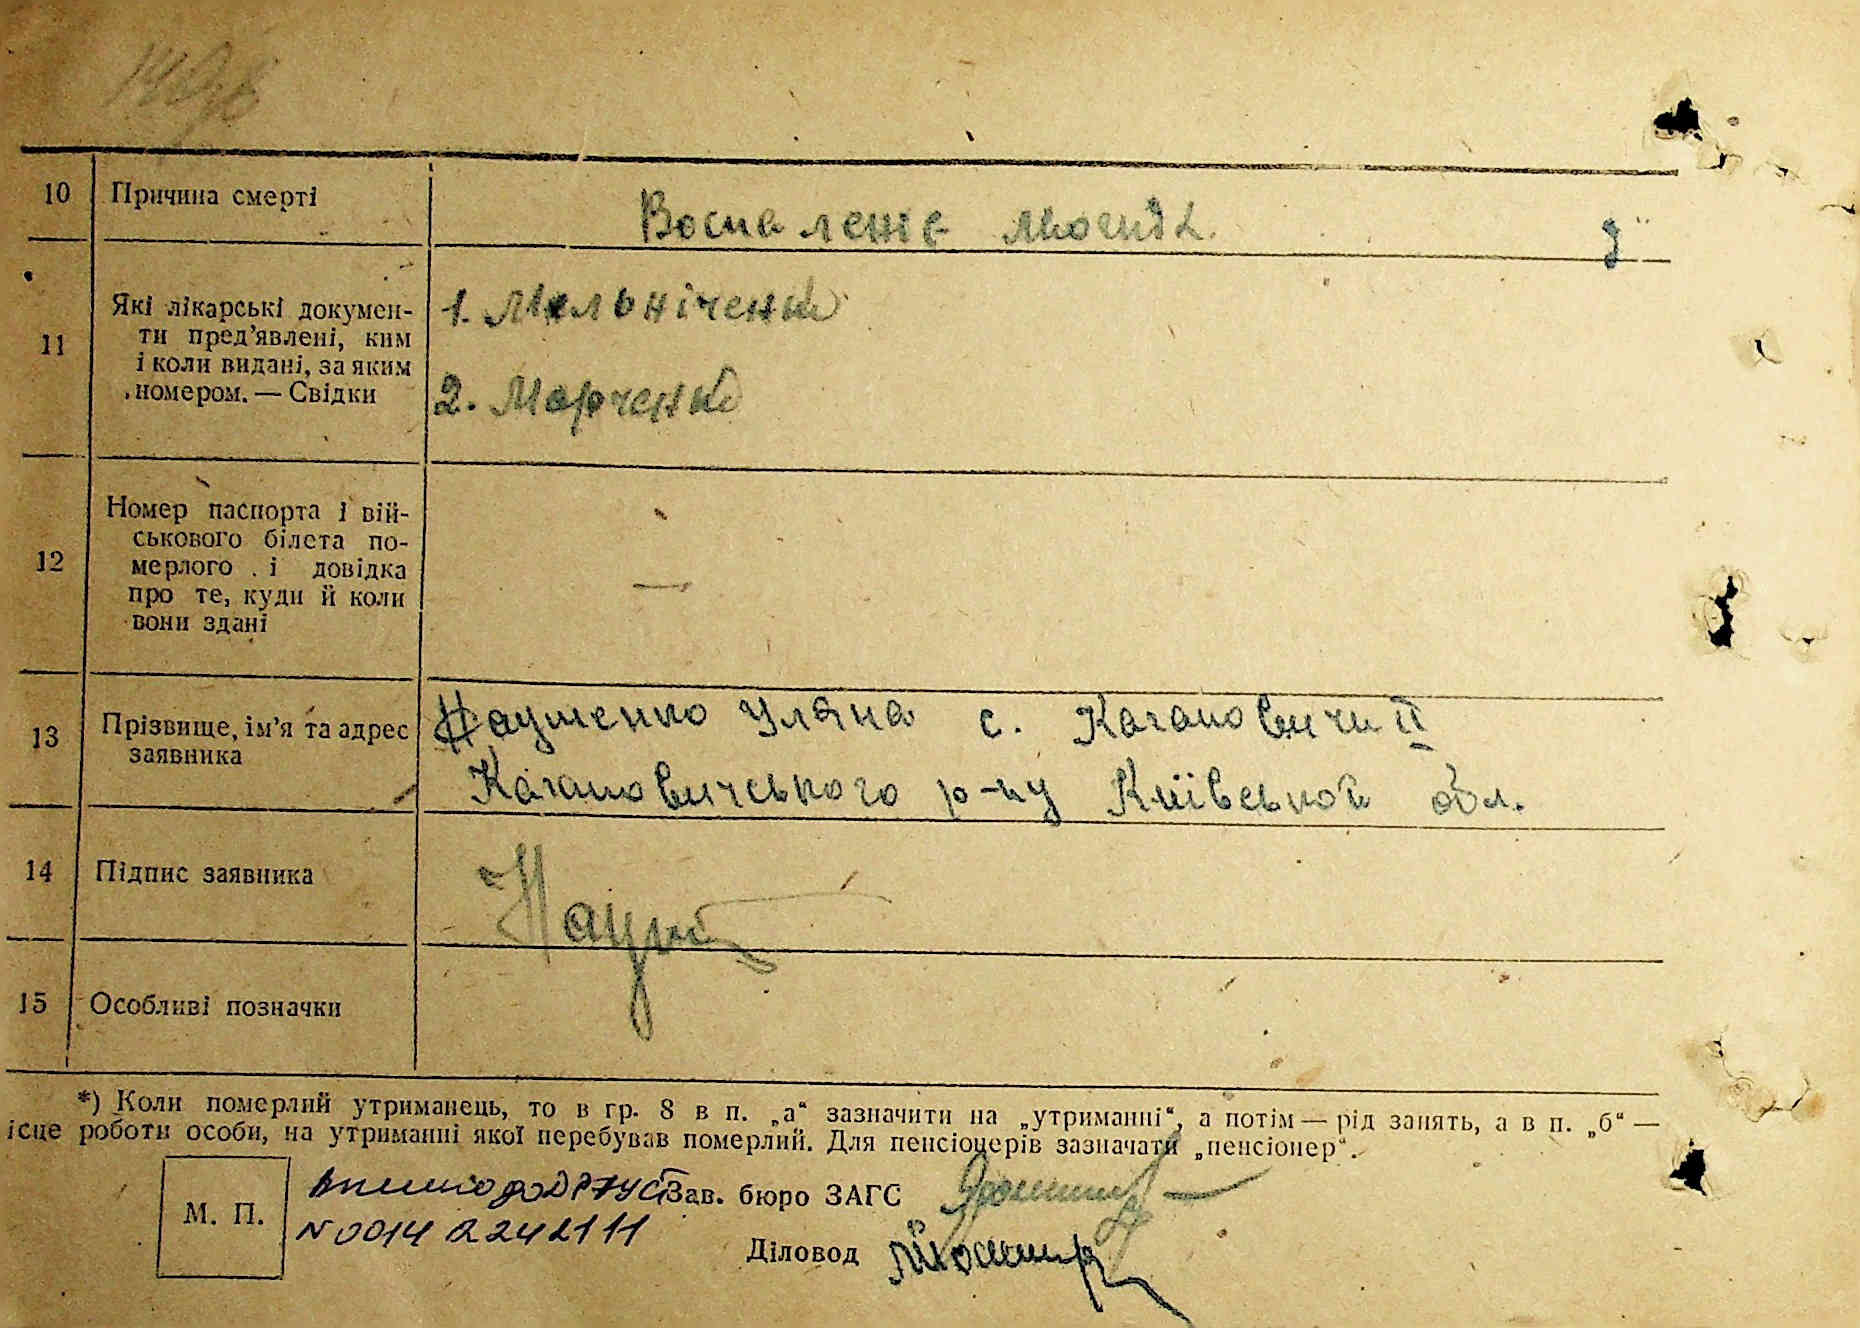 10 Причина смерті Воспаленіе
11 Які лікарські докумен-
ти пред’явлені, ким
і коли видані, за яким
номером. — Свідки
1. Мельніченко
2. Марченко
12 Номер паспорта і вій-
ськового білета по-
мерлого і довідка
про те, куди й коли
вони здані
—
13 Прізвище, ім’я та адрес
заявника
Науменко Уляна с. Кагановичи II
Кагановичського р-ну Київської обл.
14 Підпис заявника
15 Особливі позначки
*) Коли померлий утриманець, то в гр. 8 в п. „а“ зазначити на „утриманні“, а потім — рід занять, а в п. „б“ —
ісце роботи особи, на утриманні якої перебував померлий. Для пенсіонерів зазначати „пенсіонер“.
М. П.
Внесено до ДРАЦС Зав. бюро ЗАГС
N 0014 2242111
Діловод